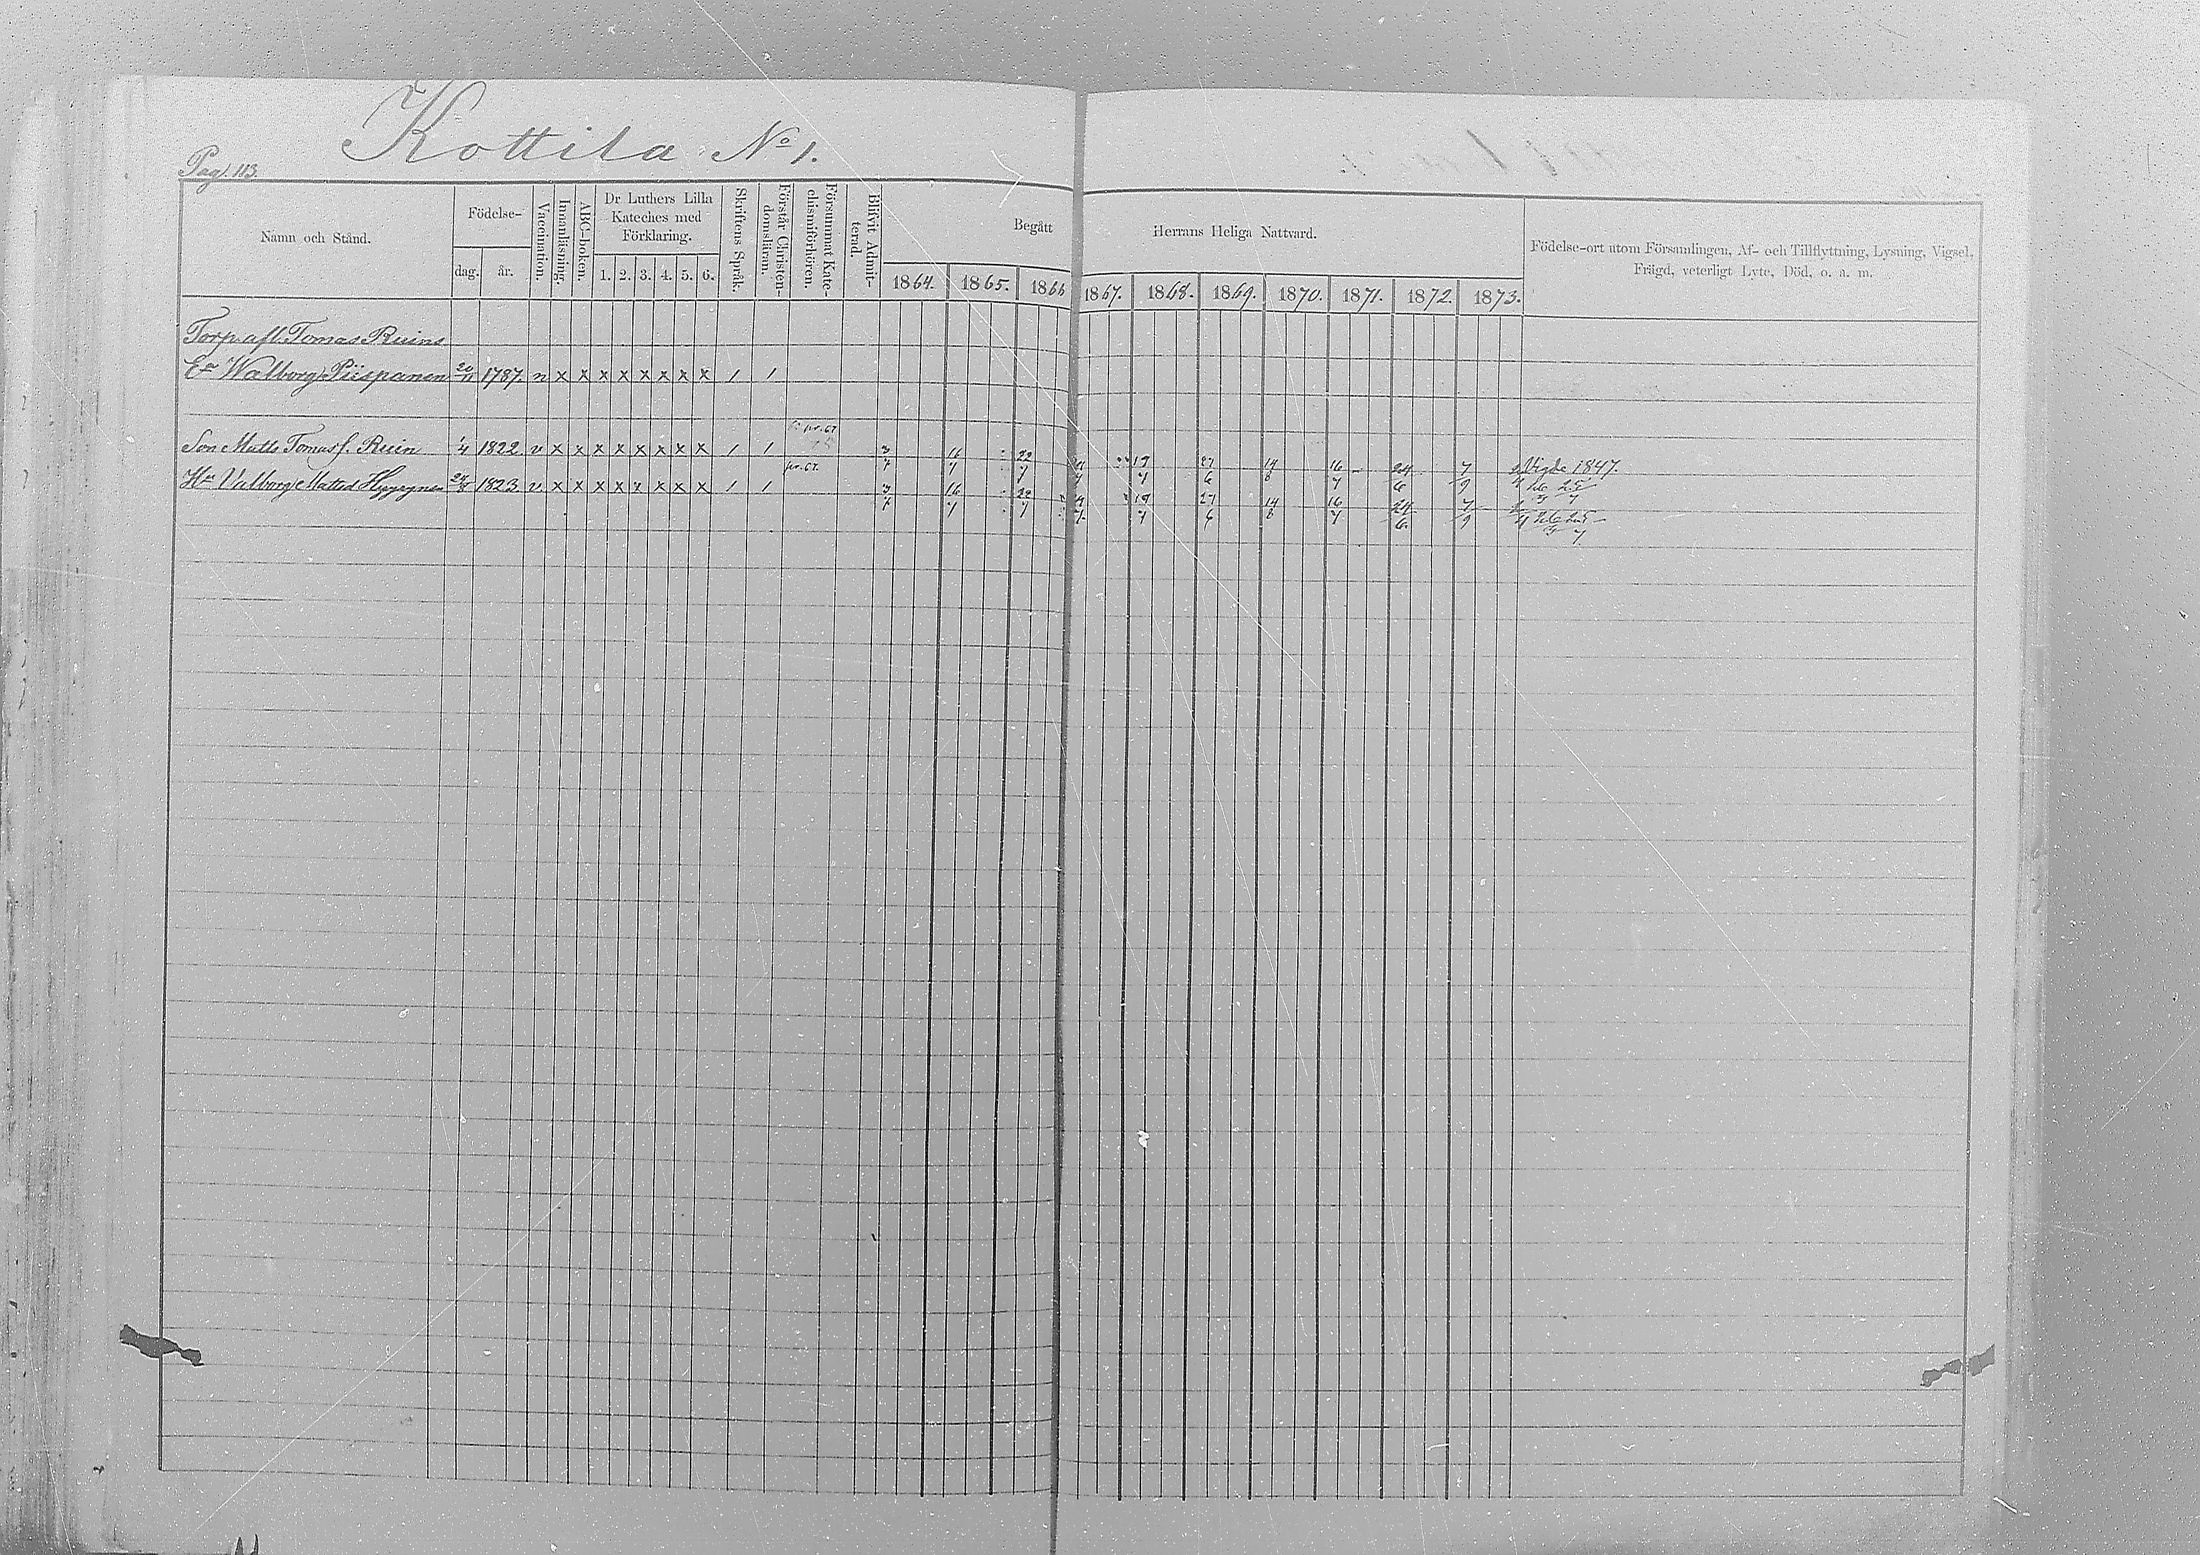 Kottila No 1.
Pag. 113.
Namn och Stånd.
Födelse-
dag. år.
Vaccination.
Innanläsning.
ABC-boken.
Dr Luthers Lilla
Kateches med
Förklaring.
1. 2. 3. 4. 5. 6.
Skriftens Språk.
Förstår Christen-
domsläran.
Försummat Kate-
chismiförhören.
Blifvit Admit-
terad.
Begått Herrans Heliga Nattvard.
1864. 1865. 1866 1867. 1868. 1869. 1870. 1871. 1872. 1873.
Födelse-ort utom Församlingen, Af- och Tillflyttning, Lysning, Vigsel,
Frägd, veterligt Lyte, Död, o. a. m.
Torp. afl. Tomas Ruins
Ea Walborg Piispanen 20/11 1787. n x x x x x x x x / /
Son Matts Tomasf. Ruin 1/4 1822 v x x x x x x x x / / 3/7 16/7 22/7 19/7 27/6 14/8 16/7 24/6 7/9 Vigde 1847.
Hu Valborg Matsd 1823 v x x x x x x x x / / pr. 67. 3/7 16/7 22/7 19/7 27/6 14/8 16/7 24/6 7/9